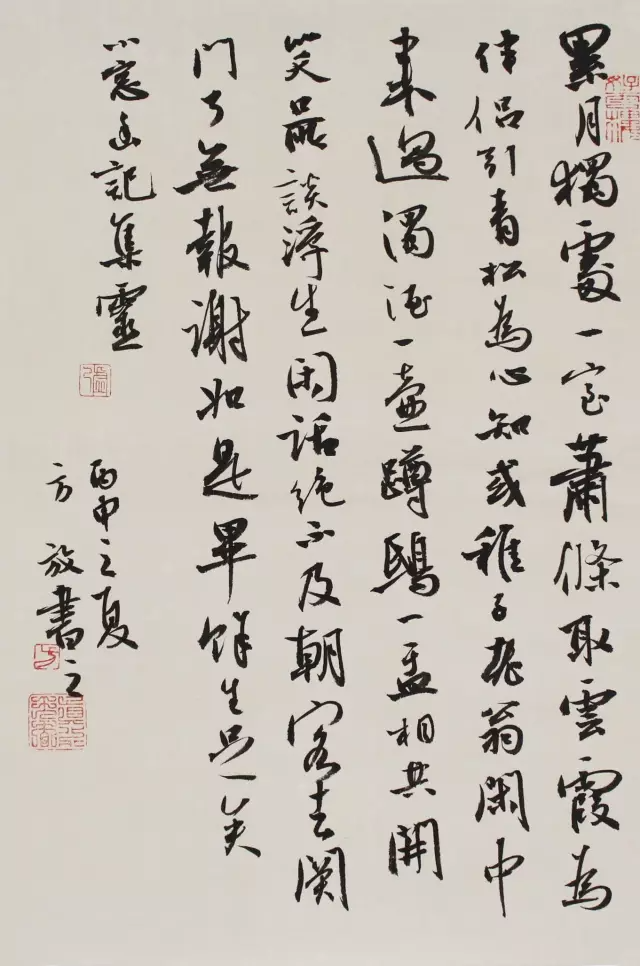 累月獨處一室蕭條取雲霞為
伴侶引青松為心知或稚子老翁閑中
來過濁酒一壺蹲鴟一盂相共開
笑品談浮生閑話絶不及朝客去關
門了無報謝如是畢餘生足矣
小窗幽記集靈
丙申之夏
方放書之